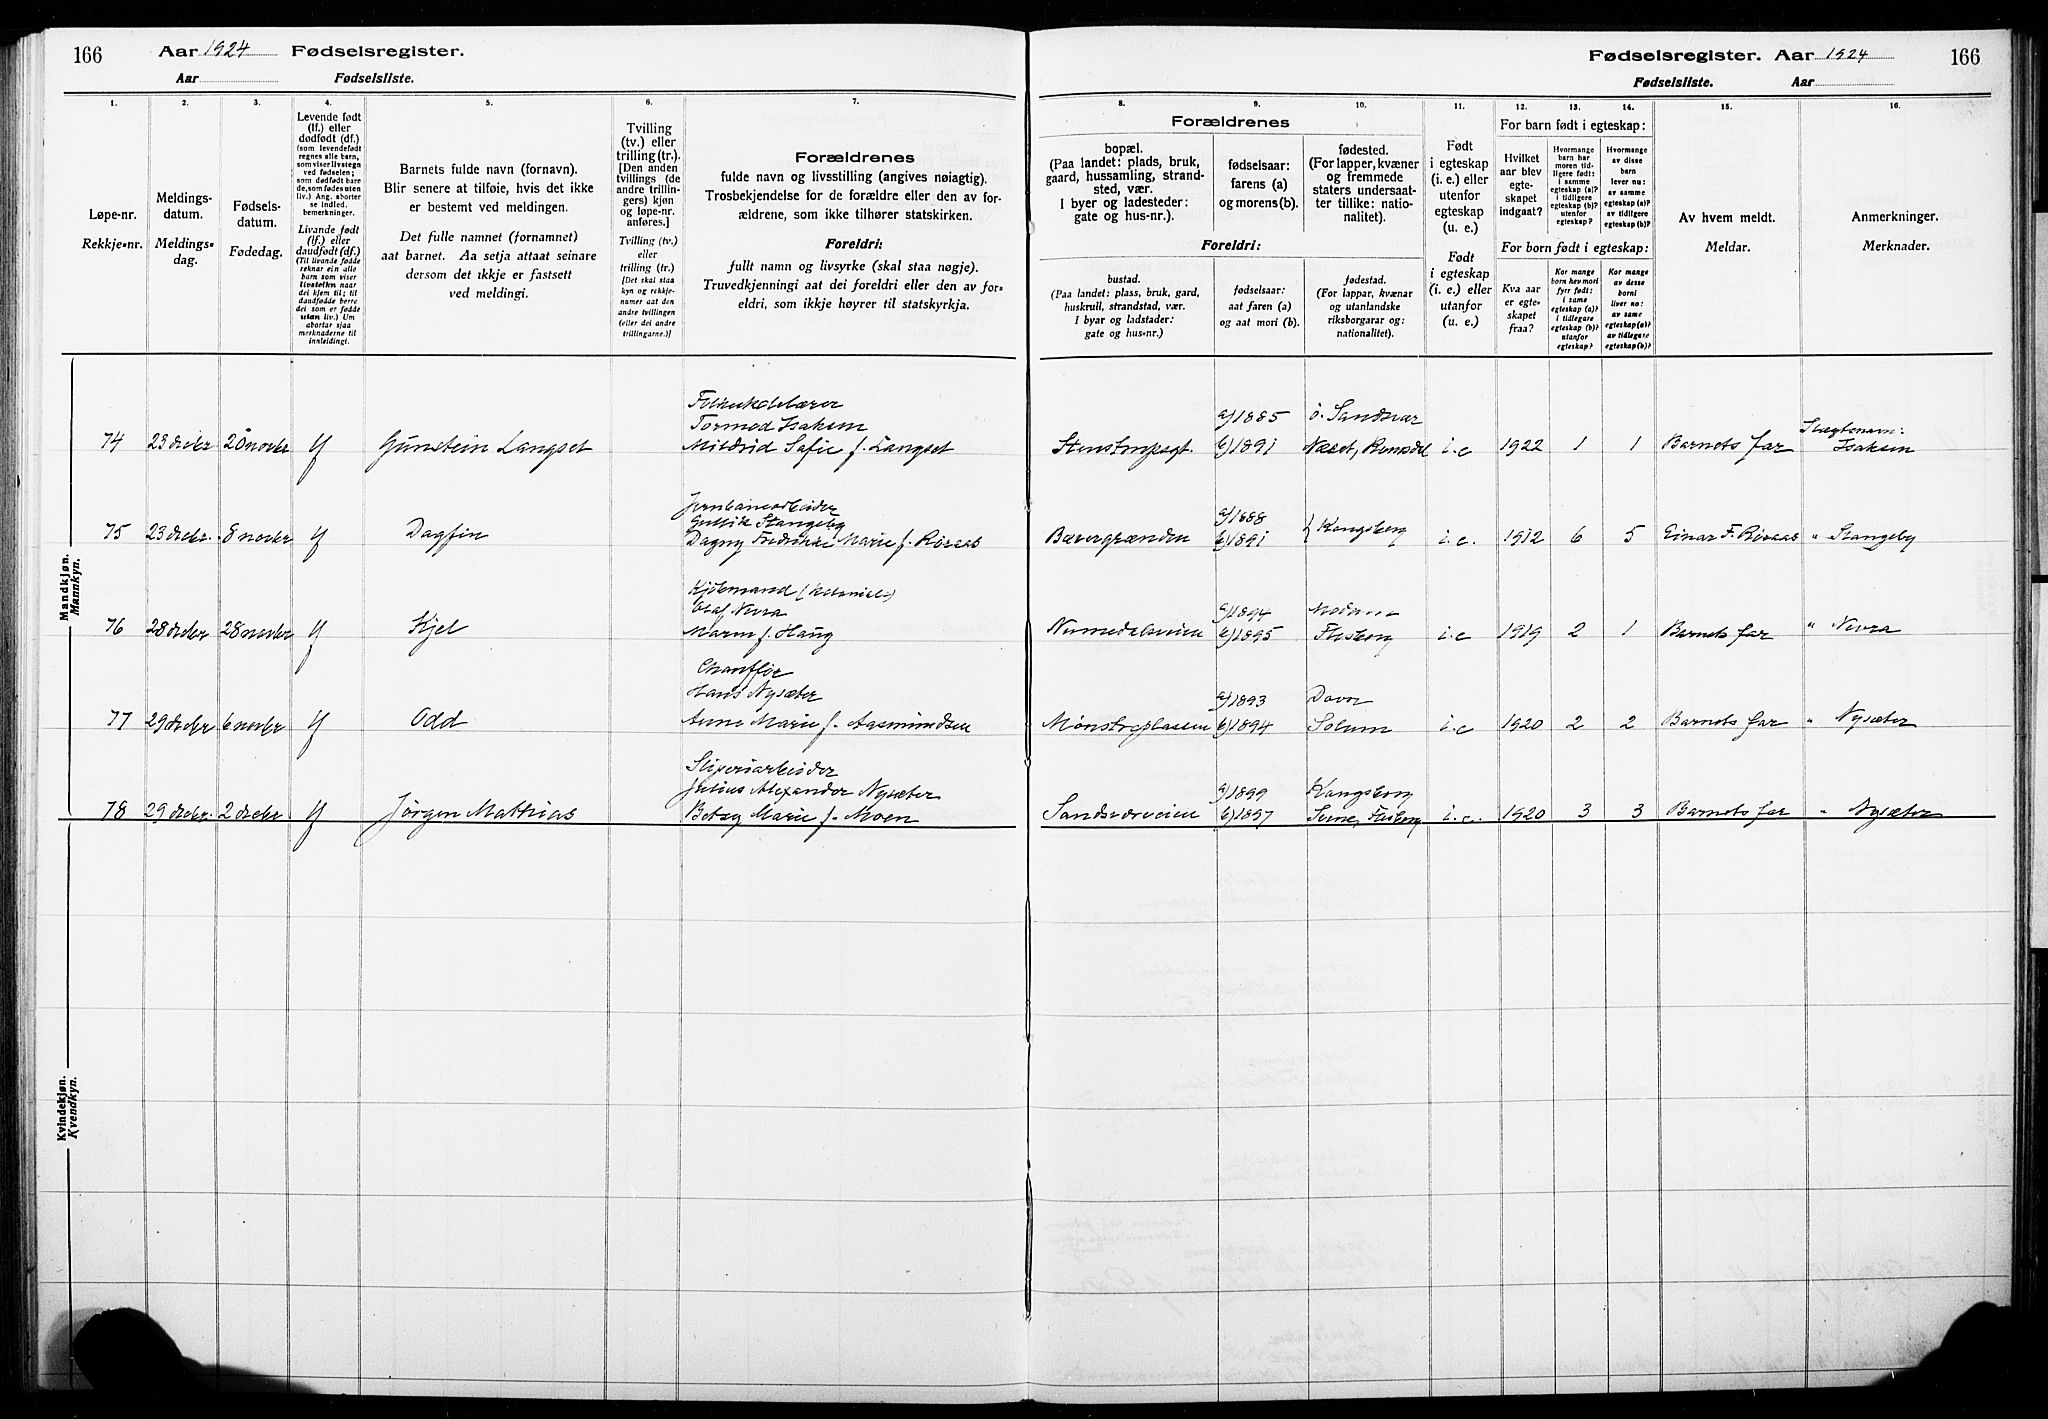 166
Aar 1924 Fødselsregister.
Aar Fødselsliste.
1.
2.
3.
4.
5.
6.
7.
Løpe-nr.
Rekkje-nr.
Meldings-
datum.
Meldings-
dag.
Fødsels-
datum.
Fødedag.
Levende født
(lf.) eller
dødfødt (df.)
(som levendefødt
regnes alle barn,
som viser livstegn
ved fødselen;
som dødfødt bare
de, som fødes uten
liv.) Ang. aborter
se indled.
bemerkninger.
Livande født
(lf.) eller
daudfødt (df.)
(Til livande fødde
reknar ein alle
barn som viser
livsteikn naar
dei kjem til; til
daudfødde berre
dei som er fødde
utan liv.) Um
abortar sjaa
merknaderne til
innleidingi.
Barnets fulde navn (fornavn).
Blir senere at tilføie, hvis det ikke
er bestemt ved meldingen.
Det fulle namnet (fornamnet)
aat barnet. Aa setja attaat seinare
dersom det ikkje er fastsett
ved meldingi.
Tvilling
(tv.) eller
trilling (tr.).
[Den anden
tvillings (de
andre trillin-
gers) kjøn
og løpe-nr.
anføres.]
Tvilling (tv.)
eller
trilling (tr.)
[Det skal staa
kyn og rekkje-
numer aat den
andre tvillingen
(eller dei andre
trillingarne.)]
Forældrenes
fulde navn og livsstilling (angives nøiagtig).
Trosbekjendelse for de forældre eller den av for-
ældrene, som ikke tilhører statskirken.
Foreldri:
fullt namn og livsyrke (skal staa nøgje).
Truvedkjenningi aat dei foreldri eller den av for-
eldri, som ikkje høyrer til statskyrkja.
Fødselsregister. Aar 1924
166
Fødselsliste. Aar
8.
9.
10.
11.
12.
13.
14.
15.
16.
Forældrenes
bopæl.
(Paa landet: plads, bruk,
gaard, hussamling, strand-
sted, vær.
I byer og ladesteder:
gate og hus-nr.).
fødselsaar:
farens (a)
og morens (b).
fødested.
(For lapper, kvæner
og fremmede
staters undersaat-
ter tillike: natio-
nalitet).
Foreldri:
bustad.
(Paa landet: plass, bruk, gard,
huskrull, strandstad, vær.
I byar og ladstader:
gate og hus-nr.)
fødselsaar:
aat faren (a)
og aat mori (b).
fødestad.
(For lappar, kvænar
og utanlandske
riksborgarar og:
nationalitet).
Født
i egteskap
(i. e.) eller
utenfor
egteskap
(u. e.)
Født
i egteskap
(i. e.) eller
utanfor
(u. e.)
For barn født i egteskap:
Hvilket
aar blev
egte-
skapet
indgaat?
Hvormange
barn har
moren tid-
ligere født:
i samme
egteskap (a)?
i tidligere
egteskap (b)?
utenfor
egteskap?
Hvormange
av disse
barn
lever nu:
av samme
egteskap (a)?
av tidligere
egteskap (b)?
For born født i egteskap:
Kva aar
er egte-
skapet
fraa?
Kor mange
born hev mori
fyrr født:
i same
egteskap (a)?
i tidlegare
egteskap (b)?
utanfor
egteskap?
Kor mange
av desse
borni
liver no:
av same
egteskap (a)?
av tidlegare
egteskap (b)?
Av hvem meldt.
Meldar.
Anmerkninger.
Merknader.
Mandkjøn.
Mannkyn.
74 23 decbr 20 novbr lf Gunstein Langset
Tormod Isaksen
f. Langset
a) 1885
b) 1891
ö. Sandsvær
i.e 1922 1 1 Barnets far
Slegtsnavn:
Isaksen
75 23 decbr. 8 novbr lf Dagfin
Jernbanearbeider
Gullik Stangeby
Dagny Fredrikke Marie f. Røraas
Bævergrænden
a) 1888
b) 1891
Kongsberg
i.e. 1912 6 5 Einar F. Røraas " Stangeby
76 28 decbr 28 novbr lf Kjel
Kjøbmand
Olaf Nevra
Maren f. Haug
Numedalsveien
a) 1894
b) 1895
Modum
Flesberg
i.e 1919 2 1 Barnets far " Nevra
77 29 decbr 6 novbr lf Odd
Chauffør
Hans Nysæter
Anne Marie f. Aasmundsen
a) 1893
b) 1894
Dovre
Solum
i.e 1920 2 2 Barnets far " Nysæter
78 29 decbr. 2 decbr lf Jørgen Mathias
Sliperiarbeider
Julius Alexander Nysæter
Betzy Marie f. Moen
Sandsværveien
a) 1899
b) 1897
Kongsberg
Svene, Flesberg
i.e. 1920 3 3 Barnets far " Nysæter
Kvindekjøn.
Kvendkyn.